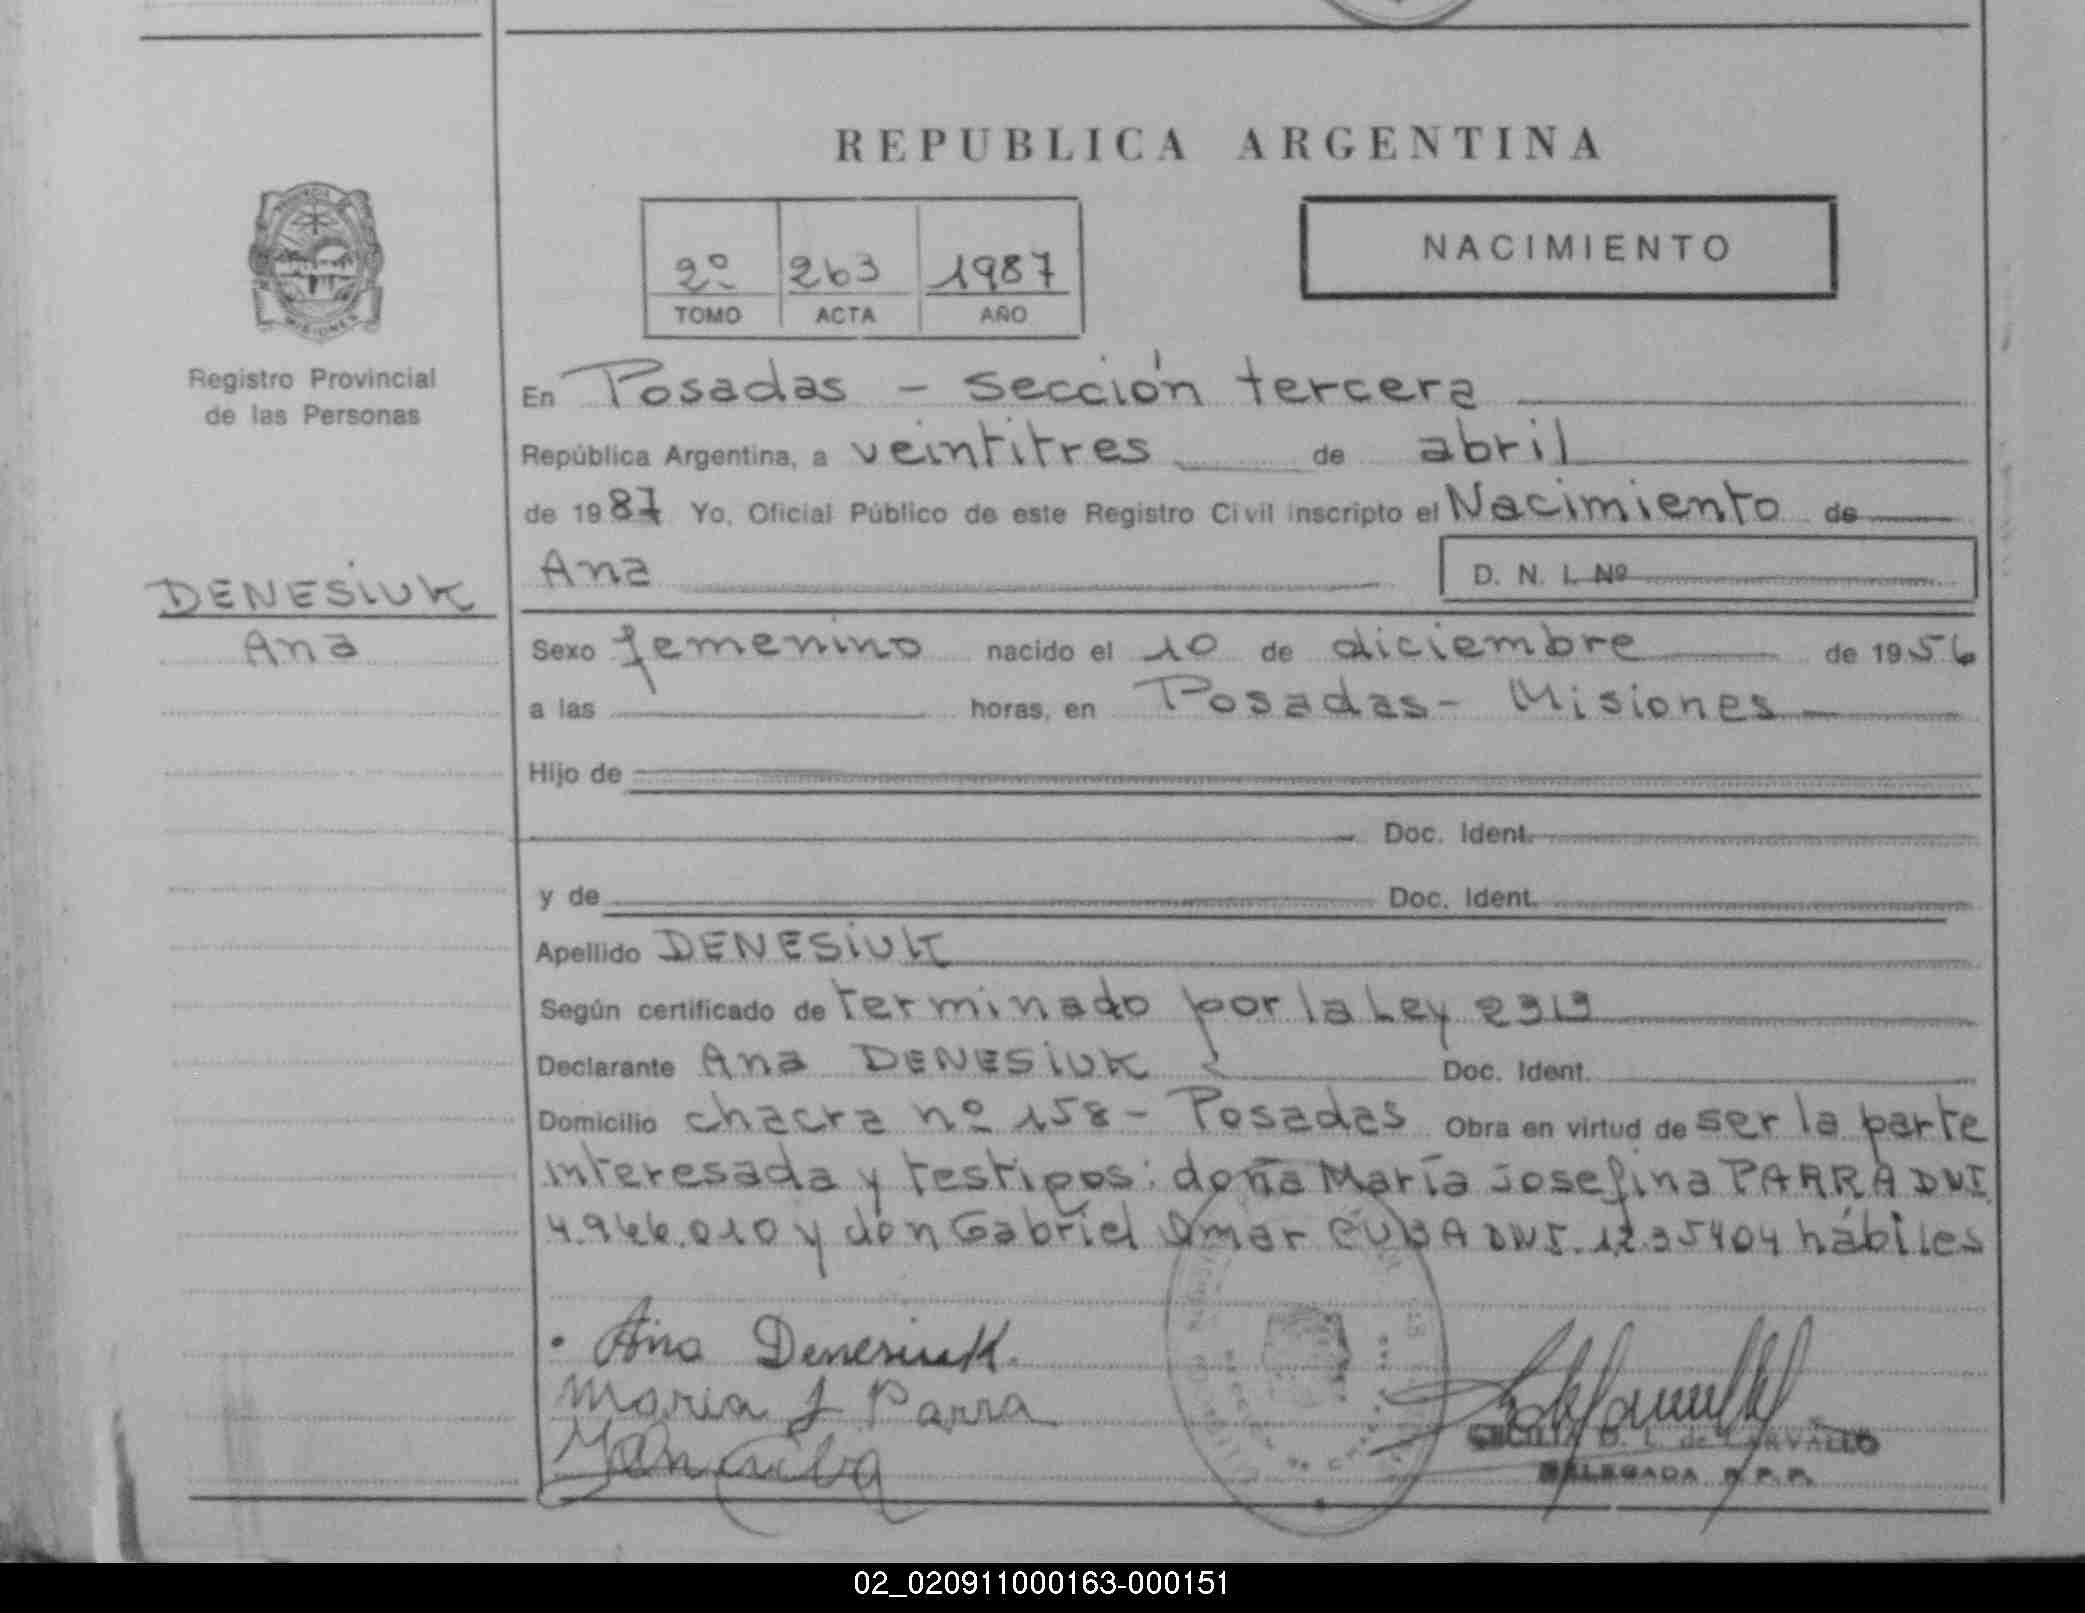 REPUBLICA ARGENTINA
NACIMIENTO
2º 263 1987
TOMO ACTA AÑO
MISIONES
Registro Provincial
de las Personas
En Posadas - sección tercera
República Argentina, a veintitres de abril
de 1987 Yo, Oficial Público de este Registro Civil inscripto el Nacimiento de
Ana D. N. I. Nº
DENESIUK
Ana
Sexo femenino nacido el 10 de diciembre de 1956
a las horas, en Posadas - Misiones
Hijo de
Doc. Ident.
y de Doc. Ident.
Apellido DENESIUK
Según certificado de terminado por la Ley 2319
Declarante Ana DENESIUK Doc. Ident.
Domicilio chacra nº 158 - Posadas Obra en virtud de ser la parte
interesada y testigos: doña María Josefina PARRA DNI
4.966.010 y don Gabriel Omar DNI. 12.35404 hábiles
Ana Denesiuk.
Maria J Parra
CECILIA D. L. de CARVALLO
DELEGADA R.P.P.
02_020911000163-000151